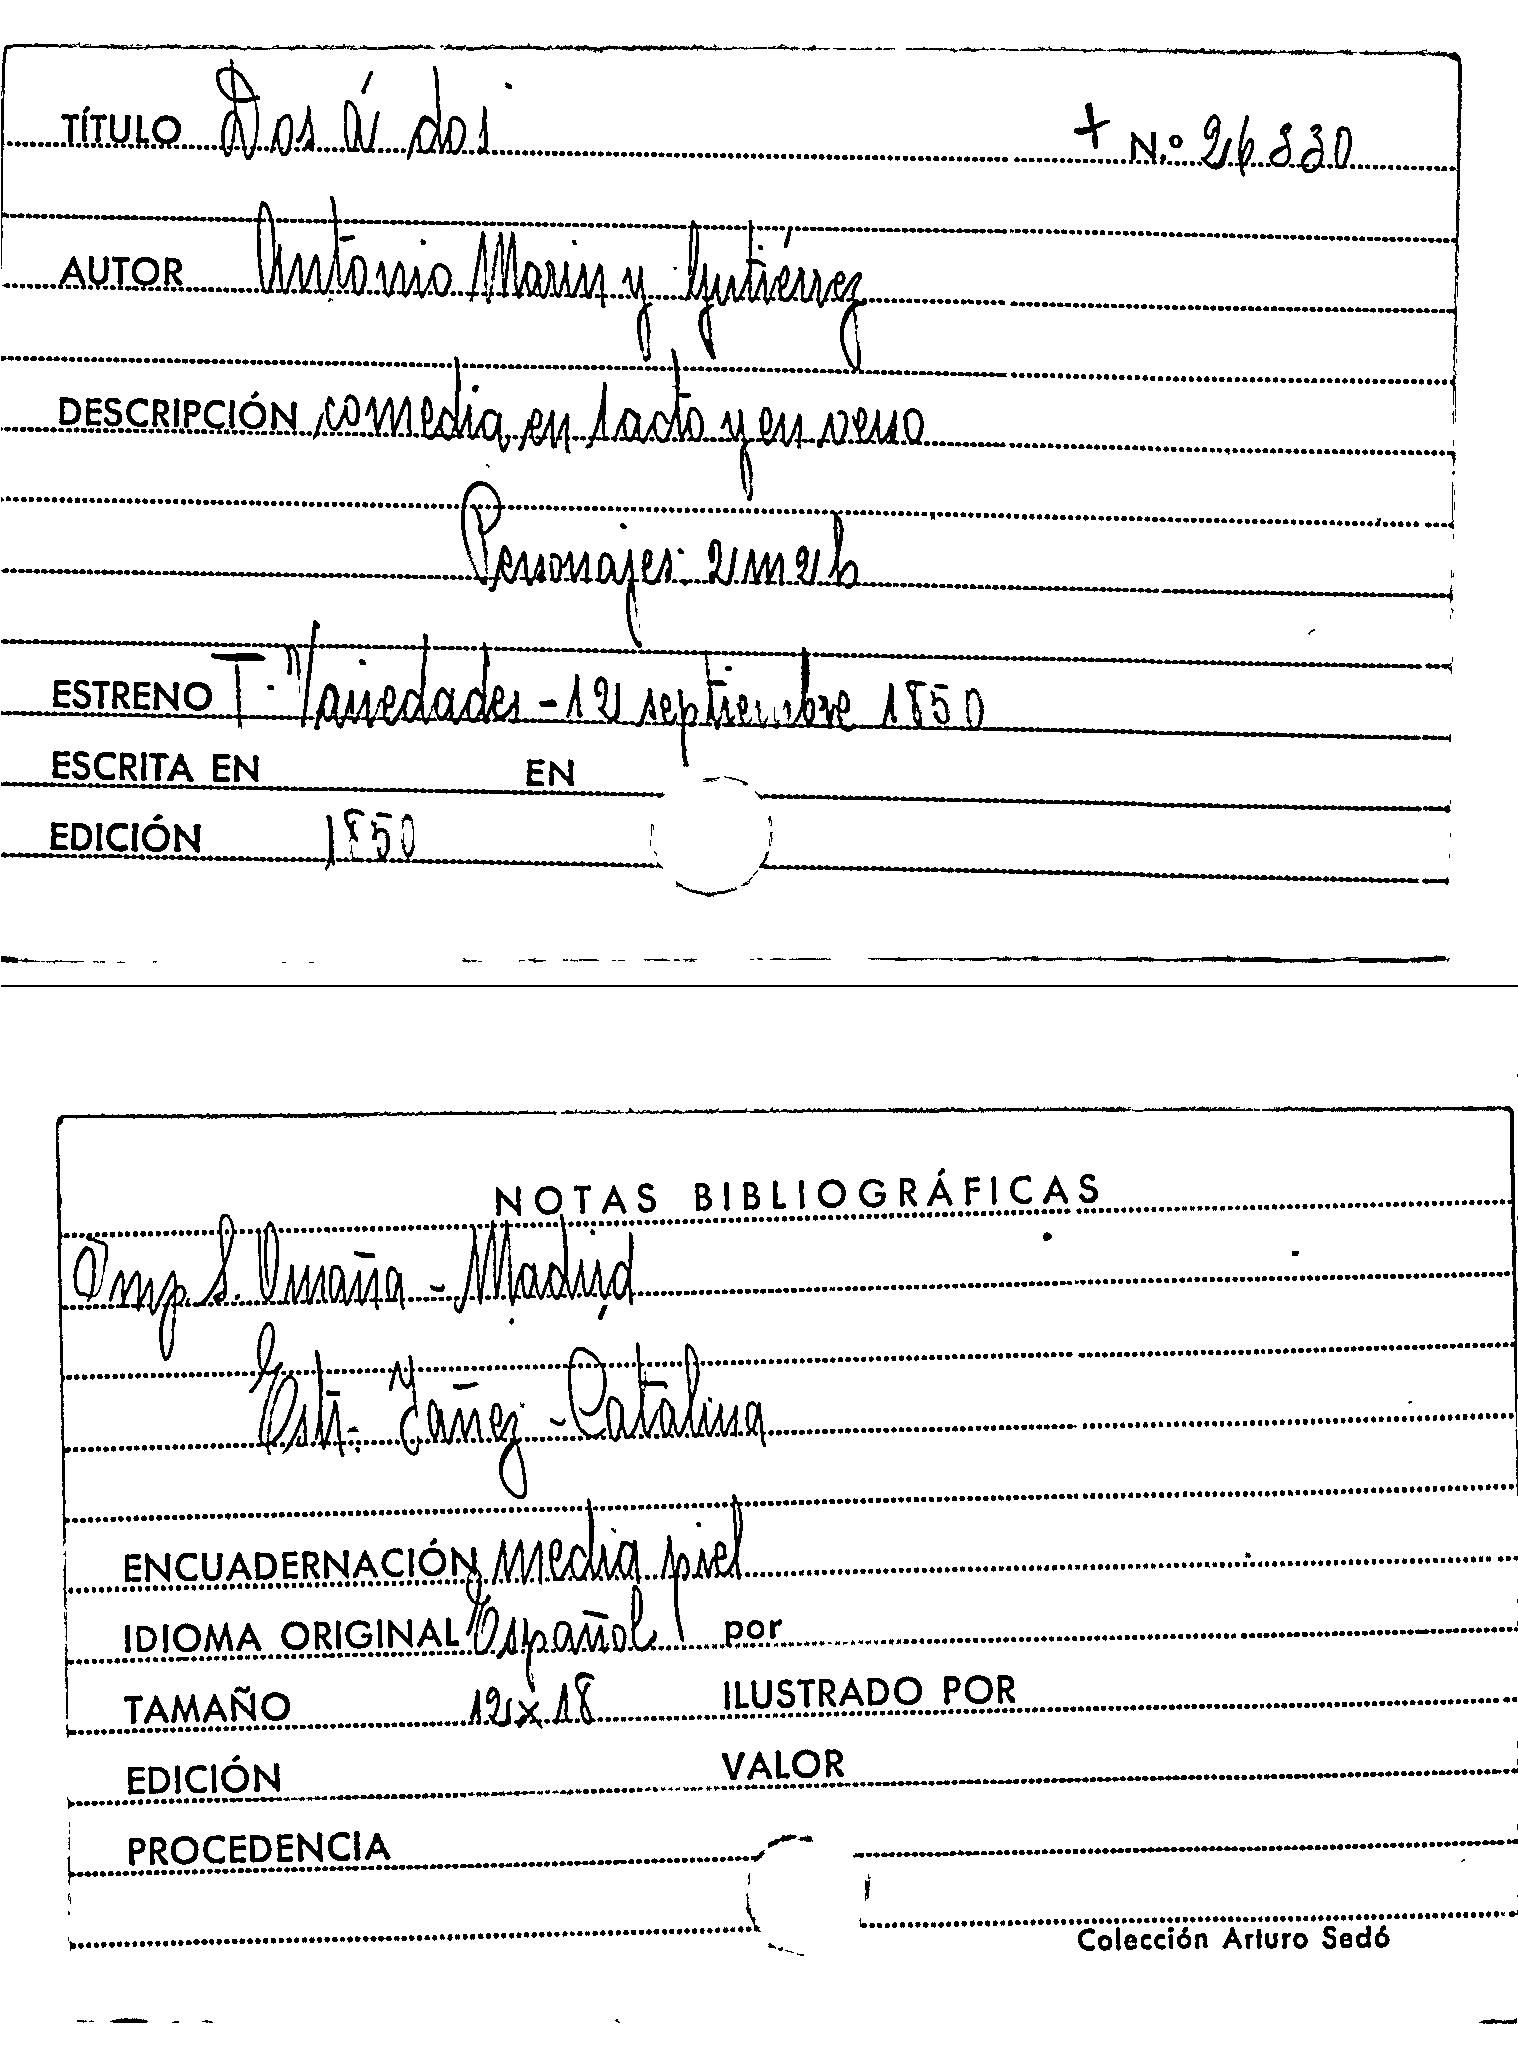 TÍTULO Dos á dos + N.º 26330
AUTOR Antonio Marin y Gutiérrez
DESCRIPCIÓN comedia en 1 acto y en verso
Personajes: 2 m 2 h
ESTRENO T. Variedades - 12 septiembre 1850
ESCRITA EN EN
EDICIÓN 1850
NOTAS BIBLIOGRÁFICAS
Imp S. Omaña - Madrid
Estr. Yañez - Catalina
ENCUADERNACIÓN media piel
IDIOMA ORIGINAL Español por
TAMAÑO 12 x 18 ILUSTRADO POR
EDICIÓN VALOR
PROCEDENCIA
Colección Arturo Sedó